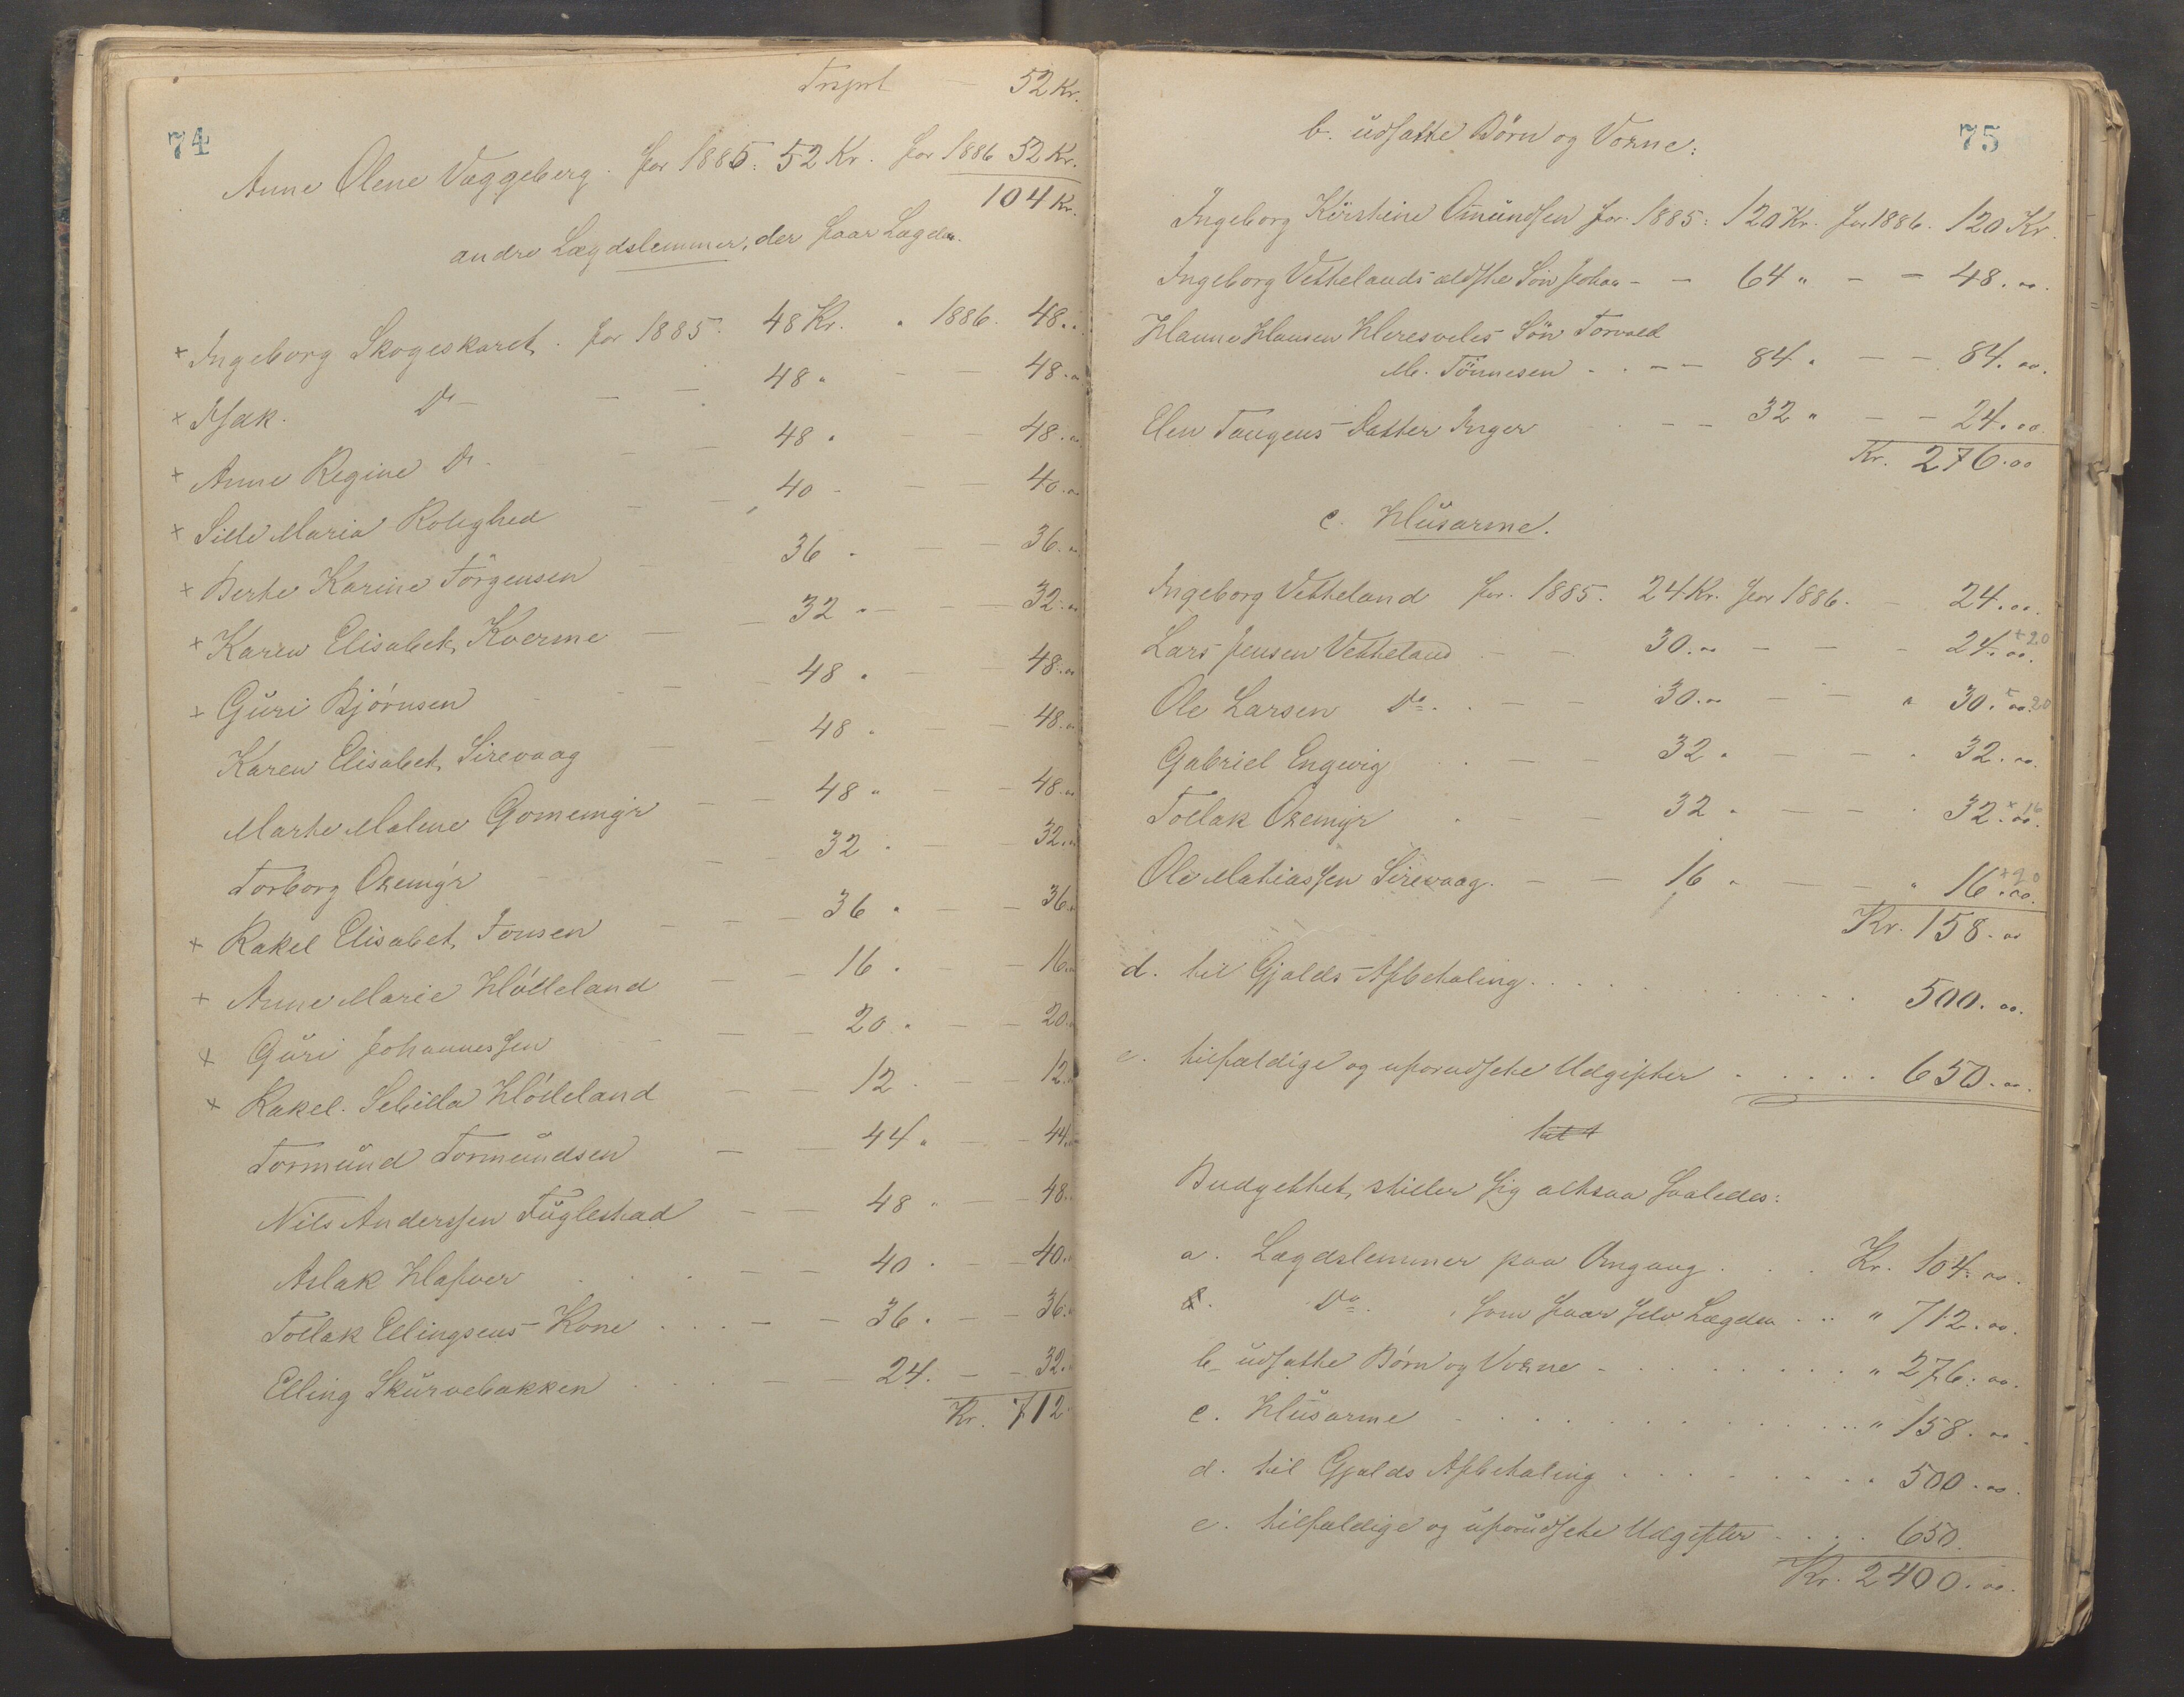 74
Trsprt — 52 Kr.
Anne Olene Væggeberg. for 1885. 52 Kr. for 1886 52 Kr.
104 Kr.
andre Lægdslemmer, der faar Lægden.
+ Ingeborg Skogeskaret. for 1885. 48 Kr. " 1886. 48.00
+ Isak. Do — — — 48 " — — 48.00
+ Anne Regine Do — — — 48 " — — 48.00
+ Sille Maria Rolighed — — 40 — — — 40.00
+ Berte Karine Törgensen — — 36 " — — 36.00
+ Karen Elisabet Kverme — — 32 " — — 32.00
+ Guri Bjørnsen — — — 48 " — — 48.00
Karen Elisabet Sirevaag — — 48 " — — 48.00
Marte Malene Gomemyr — — 48 " — — 48.00
Torborg Oxemyr — — — 32 " — — 32.00
+ Rakel Elisabet Tonsen — — — 36 " — — 36.00
+ Anne Marie Hölleland — — 16 " — — 16.00
+ Guri Johannessen — — — 20 " — — 20.00
+ Rakel Sebilla Hölleland — — 12 " — — 12.00
Tormund Tormundsen — — 44 " — — 44.00
Nils Anderssen Fuglestad — — 48 " — — 48.00
Aslak Hafver . . . — — 40 . — — 40.00
Tollak Ellingsens Kone . . . — — 36 . — — 36.00
Elling Skurvebakken . . . — — 24. — — 32.00
Kr. 712
75
b. udsatte Börn og Voxne:
Ingeborg Kirstine Omundsen for 1885: 120 Kr. for 1886. 120 Kr.
Ingeborg Vettelands ældste Søn Johan — — 64 " — — 48.00.
Hanne Hansen Heresveles Søn Torvald
M. Tönnesen . . — — 84 " — — 84.00.
Elen Tangens Datter Inger . — — 32 " — — 24.00.
Kr. 276.00
c. Husarme.
Ingeborg Vetteland for 1885. 24 Kr. for 1886. — 24.00.
Lars Jensen Vetteland — — 30.00 — — - 24.00. +20
Ole Larsen Do. . — — 30.00 — — " 30.00. +20
Gabriel Engevig . . — — 32 " — — " 32.00.
Tollak Oxemyr . — — 32 " — — " 32.00. +16
Ole Mathiassen Sirevaag. — — 16 " — — " 16.00. +20
Kr. 158.00
d. til Gjælds-Afbetaling . . . . . . . 500.00.
e. tilfældige og uforudsete Udgifter . . . . . 650.00.
Budgettet stiller sig altsaa saaledes:
a. Lægdslemmer paa Omgang . . . Kr. 104.00.
Do. , som faar selv Lægden . . " 712.00.
b. udsatte Børn og Voxne . . . . . . . " 276.00.
c. Husarme . . . . . . . . . " 158.00.
d. til Gjælds Afbetaling . . . . . . . 500.00.
e. tilfældige og uforudsete Udgifter . . . . 650.
Kr. 2400.00.